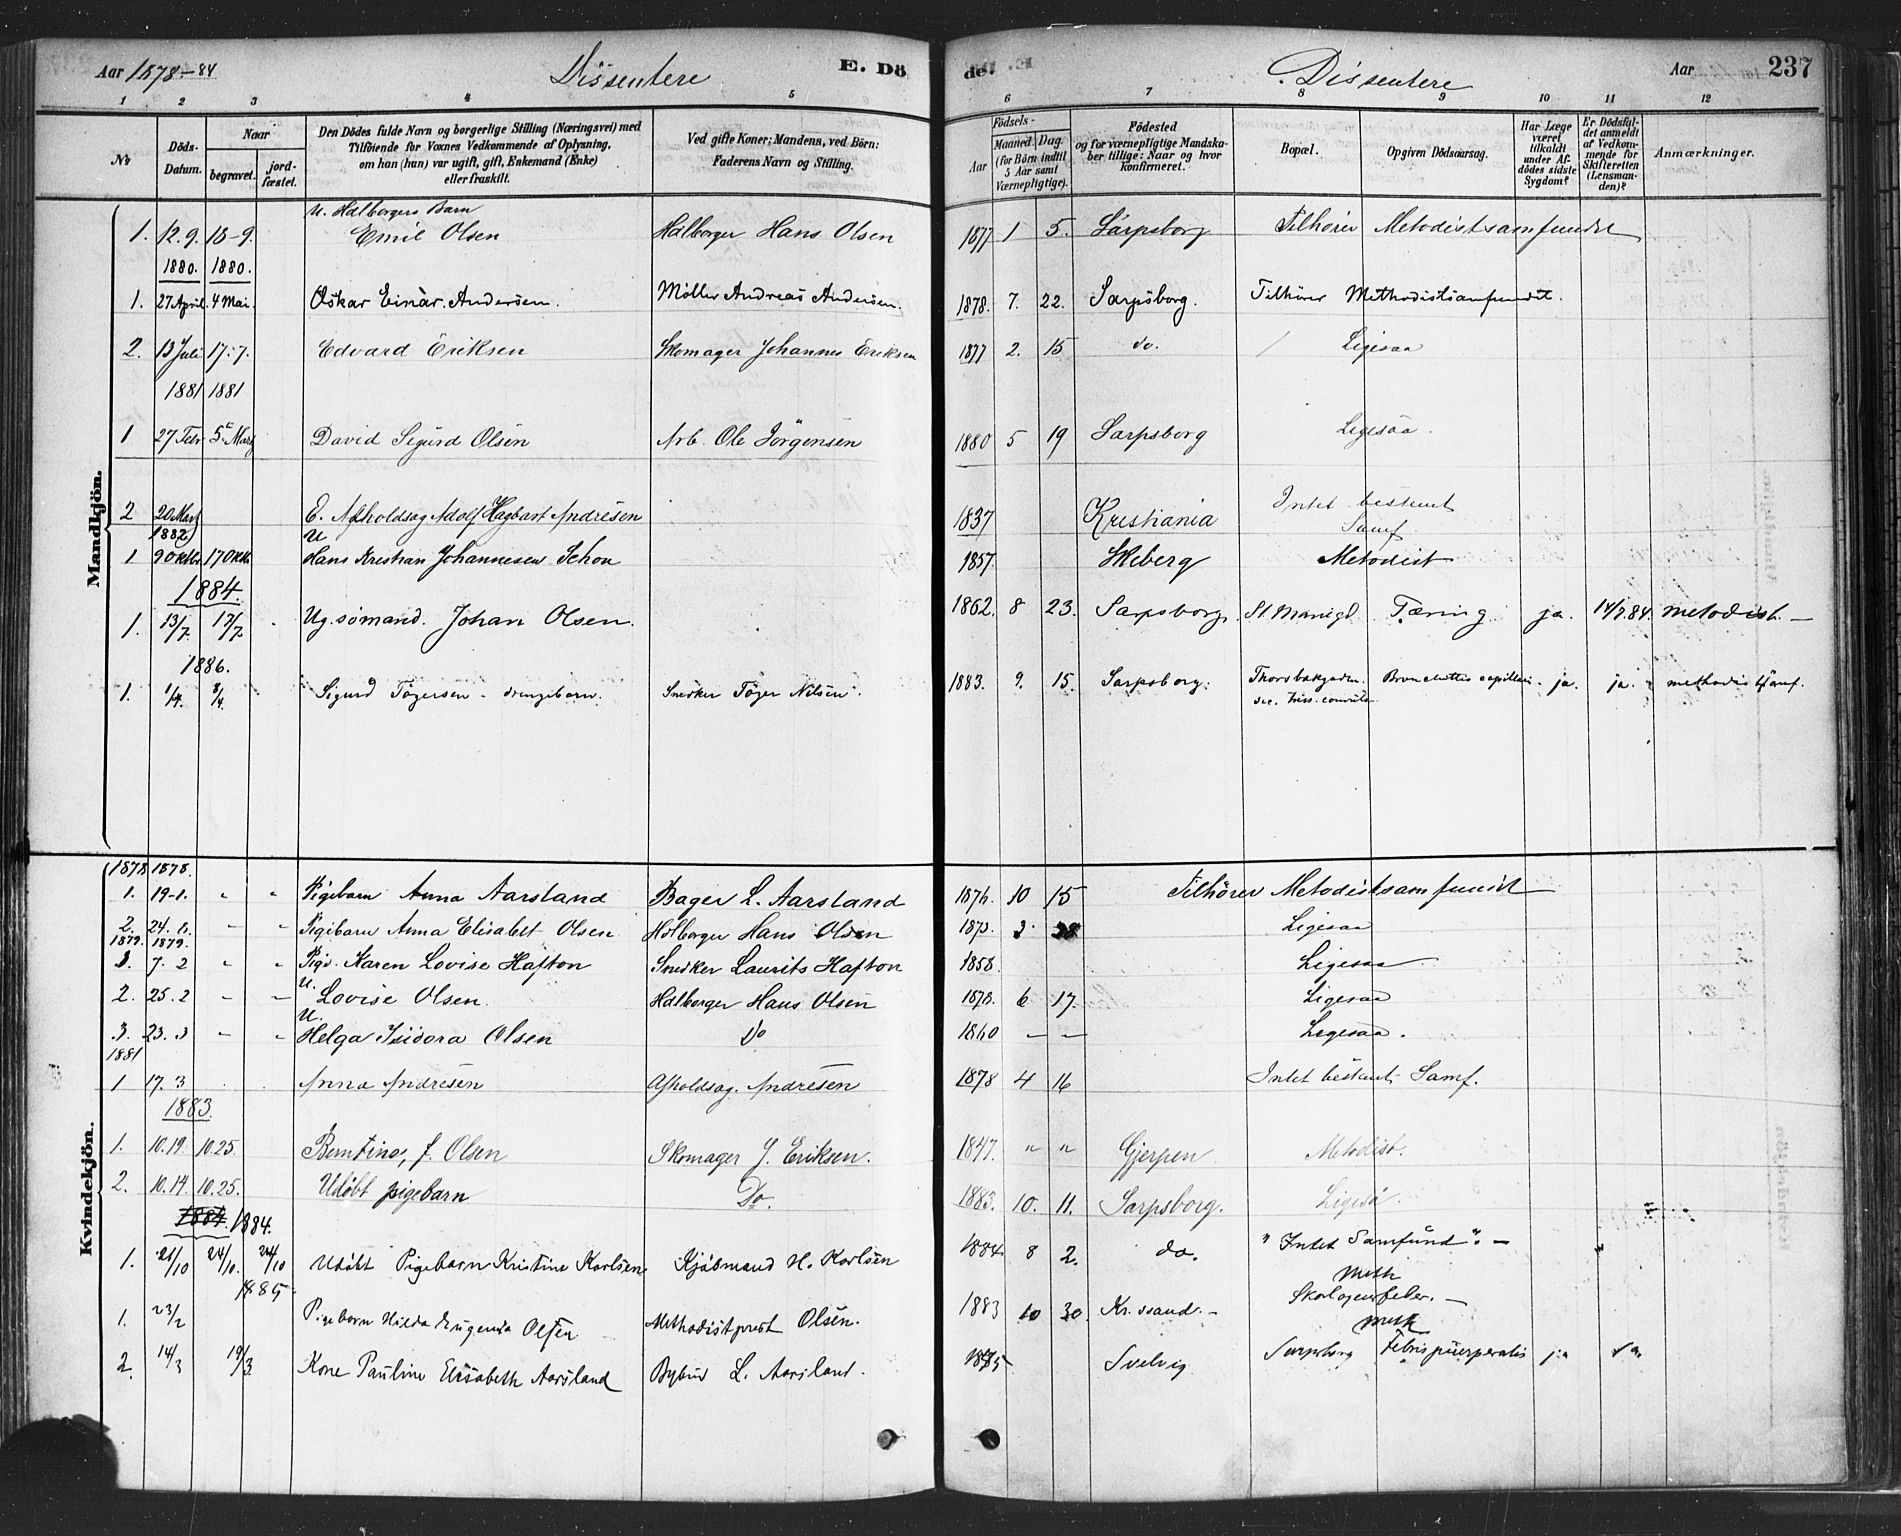 Aar 1878-84 Dissentere E. Dö
de. Dissentere Aar 237
1 2 3 4 5
6 7 8 9 10 11 12
No
Döds-Datum.
Naar
begravet.
jord-fæstet.
Den Dödes fulde Navn og borgerlige Stilling (Næringsvei) med
Tilföiende for Voxnes Vedkommende af Oplysning,
om han (hun) var ugift, gift, Enkemand (Enke)
eller fraskilt.
Ved gifte Koner: Mandens, ved Börn:
Faderens Navn og Stilling.
Födsels-
Aar
Maaned. Dag.
(for Börn indtil
5 Aar samt
Værnepligtige).
Födested
og for værnepligtige Mandska-
ber tillige: Naar og hvor
konfirmeret.
Bopæl.
Opgiven Dödsaarsag.
Har Læge
været
tilkaldt
under Af-
dödes sidste
Sygdom?
Er Dödsfal-
det anmeldt
af Vedkom-
mende for
Skifteretten
(Lensman-
den)?
Anmærkninger.
Mandkjön.
U. Halborgers Barn
1. 12.9. 18-9. Emil Olsen Halborger Hans Olsen 1877 1 5. Sarpsborg Tilhörer Metodistsamfundet
1880. 1880.
1. 27 April 4 Mai. Oskar Einar Andersen. Möller Andreas Andersen. 1878. 7. 22. Sarpsborg. Tilhörer Methodistsamfundet.
2. 13 Juli 17-7. Edvard Eriksen Skomager Johannes Eriksen 1877 2. 15 do. Ligesaa
1881 1881
1 27 Febr 5 Marz David Sigurd Olsen Arb. Ole Jörgensen 1880 5 19 Sarpsborg Ligesaa.
2 20 Mart E. Afholdsag. Adolf Hagbart Andresen 1837 Kristiania Intet bestemt Samf.
1882 U
1 9 Oktb 17 Oktb Hans Kristian Johannesen Schou 1857 Skeberg Metodist
1884.
1. 13/7. 17/7. Ug. sömand. Johan Olsen. 1862. 8 23. Sarpsborg, St. Mariegd. Tæring ja. 14/7.84. metodist. —
1886.
1. 1/4. 8/4. Sigurd Töger­sen - drengebarn. Snedker Töger Nilsen. 1883. 9. 15. Sarpsborg. Thorsbakgaden. Bronchittis capillari ja. ja. methodistsamf.
Kvindekjön.
1878 1878.
1. 19-1. " " Pigebarn Anna Aarsland Bager L. Aarsland 1876. 10 15 Tilhörer Metodistsamfundet
2. 24. " " Pigebarn Anna Elisabet Olsen Halborger Hans Olsen 1873. 3 28 Ligesaa
1879. 1879.
1. 7. 2 " " Pige. Karen Lovise Hafton Snedker Laurits Hafton 1858. Ligesaa
U.
2. 25. 2 " " Lovise Olsen Halborger Hans Olsen 1878. 6 17. Ligesaa
U.
3. 23. 3 " " Helga Isidora Olsen Do 1860 — — Ligesaa.
1881
1 17. 3 Anna Andresen Afholdsag. Andresen 1878 4 16 Intet bestemt Samf.
1883.
1. 10.19. 10.25. Berntine, f. Olsen Skomager J. Eriksen. 1847. " " Gjerpen Metodist.
2. 10.14. 10.25. Udöbt pigebarn Do. 1883. 10. 11. Sarpsborg. Ligeså
1884. 1884.
1. 21/10 24/10. 24/10 Udöbt Pigebarn Kristine Karlsen Kjöbmand H. Karlsen 1884. 8 2. do. "Intet Samfund". —
1885
1. 23/2 Pigebarn Hilda Eugenda Olsen Methodistprest Olsen. 1883 10 30. Kr.ssand. — Meth Skarlagensfeber. —
2. 14/3 19/3. Kone Pauline Elisabeth Aarsland L. Aarsland. Svelvig Sarpsborg Meth Febris puerperalis ja